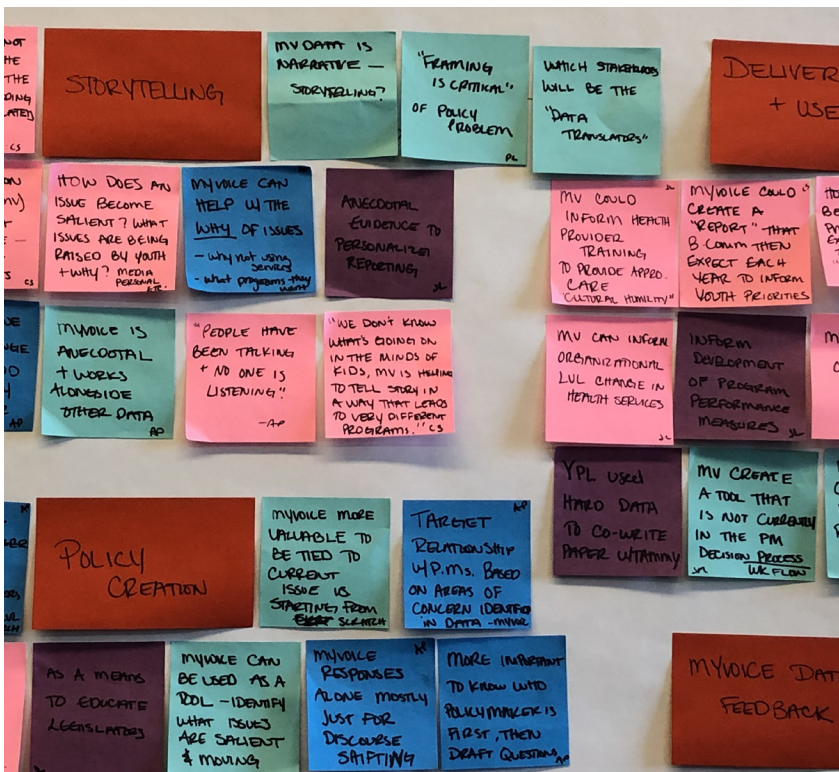 NOT
THE
THE
CS
STORYTELLING
MV DATA IS
NARRATIVE —
STORYTELLING?
"FRAMING
IS CRITICAL"
OF POLICY
PROBLEM
PL
WHICH STAKEHOLDERS
WILL BE THE
"DATA
TRANSLATORS"
DELIVER
+ USE
CS
HOW DOES AN
ISSUE BECOME
SALIENT? WHAT
ISSUES ARE BEING
RAISED BY YOUTH
+ WHY? MEDIA
PERSONAL
ETC.
MYVOICE CAN
HELP W/ THE
WHY OF ISSUES
- why not using
services
- what programs they
want
ANECDOTAL
EVIDENCE TO
PERSONALIZE
REPORTING
JL
MV COULD
INFORM HEALTH
PROVIDER
TRAINING
TO PROVIDE APPRO.
CARE
"CULTURAL HUMILITY"
MYVOICE COULD
CREATE A
"REPORT" THAT
B COMM THEN
EXPECT EACH
YEAR TO INFORM
YOUTH PRIORITIES
AP
MYVOICE IS
ANECDOTAL
+ WORKS
ALONGSIDE
OTHER DATA
AP
"PEOPLE HAVE
BEEN TALKING
+ NO ONE IS
LISTENING"
-AP
"WE DON'T KNOW
WHAT'S GOING ON
IN THE MINDS OF
KIDS, MV IS HELPING
TO TELL STORY IN
A WAY THAT LEADS
TO VERY DIFFERENT
PROGRAMS." CS
MV CAN INFORM
ORGANIZATIONAL
LVL CHANGE IN
HEALTH SERVICES
JL
INFORM
DEVELOPMENT
OF PROGRAM
PERFORMANCE
MEASURES
JL
YPL used
HARD DATA
TO CO-WRITE
PAPER W/TAMMY
MV CREATE
A TOOL THAT
IS NOT CURRENTLY
IN THE PM
DECISION PROCESS
WK FLOW
POLICY
CREATION
MYVOICE MORE
VALUABLE TO
BE TIED TO
CURRENT
ISSUE VS
STARTING FROM
SCRATCH
AP
TARGET
RELATIONSHIP
W/P.MS. BASED
ON AREAS OF
CONCERN IDENTIFIED
IN DATA
AS A MEANS
TO EDUCATE
LEGISLATORS
MYVOICE CAN
BE USED AS A
TOOL — IDENTIFY
WHAT ISSUES
ARE SALIENT
& MOVING
AP
MYVOICE
RESPONSES
ALONE MOSTLY
JUST FOR
DISCOURSE
SHIFTING
MORE IMPORTANT
TO KNOW WHO
POLICYMAKER IS
FIRST, THEN
DRAFT QUESTIONS
AP
MYVOICE DAT
FEEDBACK